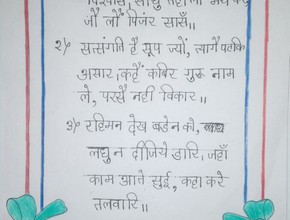 विश्वास, साधु तहाँ लों भय करे
जौ लौं पिंजर सासँ।
२) सत्संगति है सूप ज्यों, त्यागै फटकि
असार।कहैं कबिर गुरू नाम
ले, परसै नही विकार॥
३) रहिमन देख बडेन को,
लघु न दीजिये डारि, जहाँ
काम आवे सुई, कहा करे
तलवारि॥